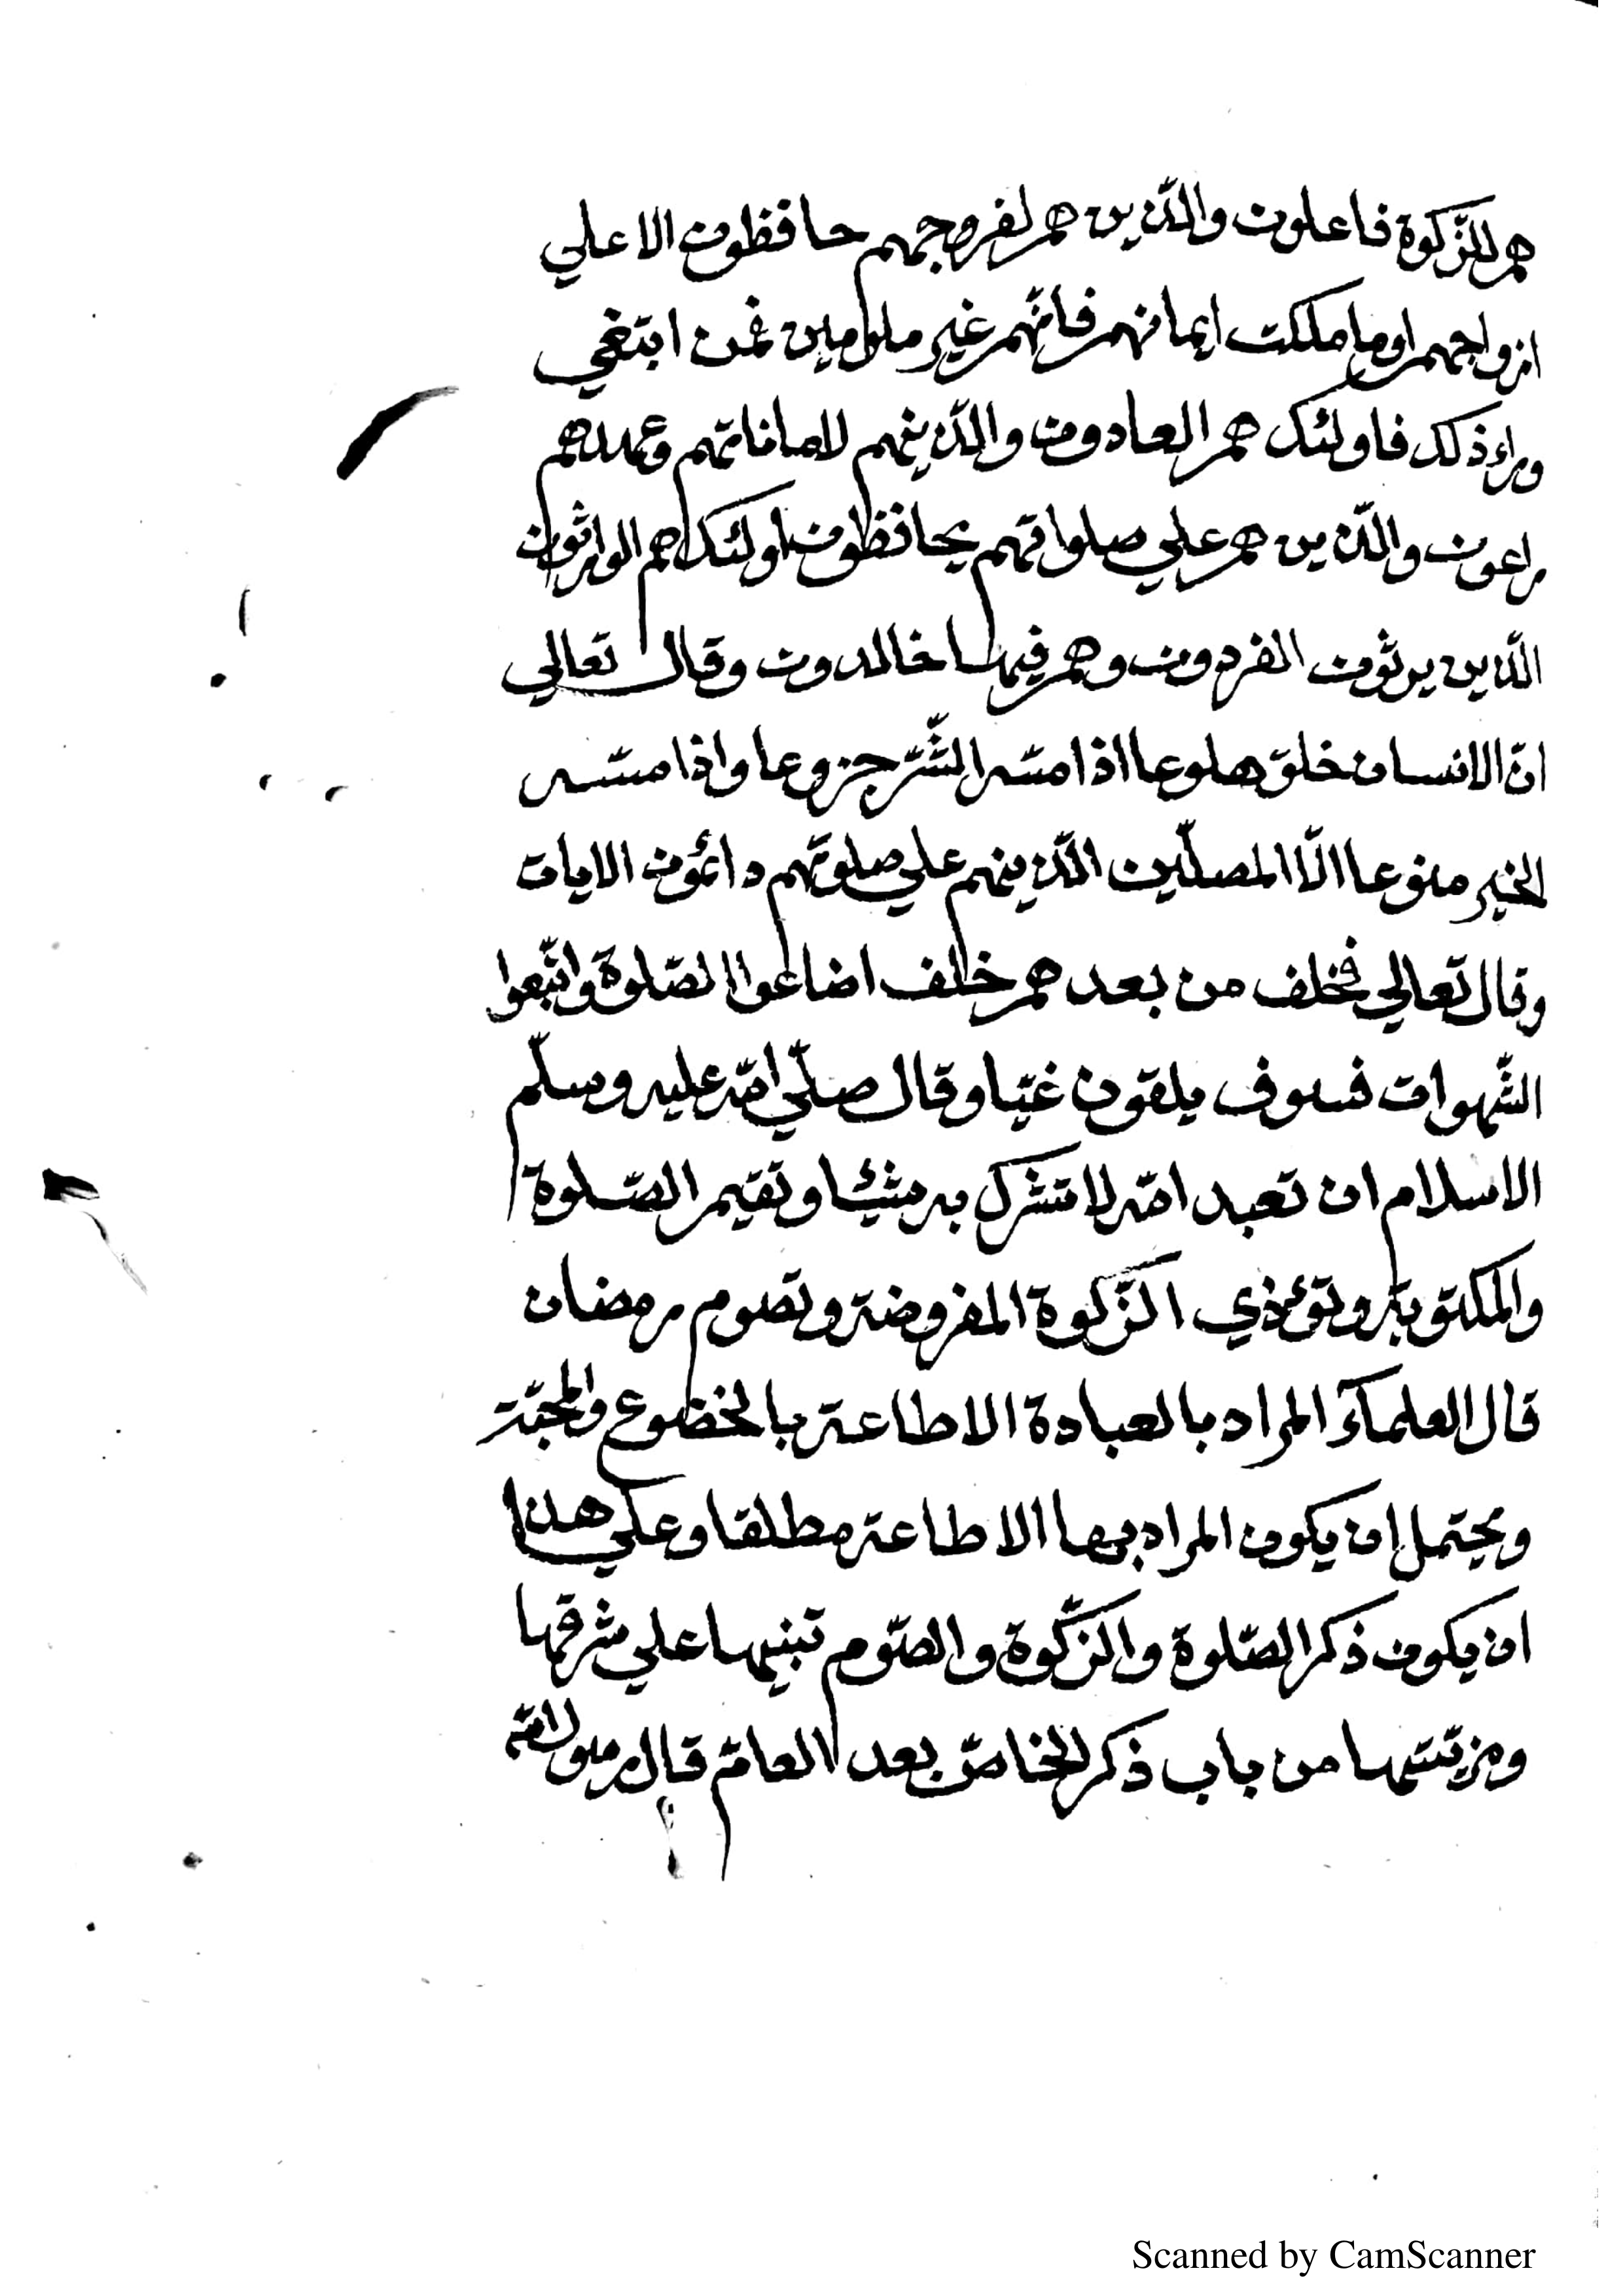 هم للزّكوة فاعلون والّذين هم لفروجهم حافظون الا علي
ازواجهم او ما ملكت ايمانهم فانّهم غير ملومين فمن ابتغي
وراء ذلك فاولئك هم العادون والّذينهم لاماناتهم وعهدهم
راعون والّذين هم علي صلواتهم يحافظون اولئك هم الوارثون
الّذين يرثون الفردوس وهم فيها خالدون وقال تعالي
انّ الانسان خلق هلوعا اذا مسّه الشّر جزوعا واذا مسّه
الخير منوعا الّا المصلّين الّذينهم علي صلوتهم دائمون الايات
وقال تعالي فخلف من بعدهم خلف اضاعوا الصّلوة واتّبعوا
الشّهوات فسوف يلقون غيّا وقال صلّي اللّه عليه وسلّم
الاسلام ان تعبد اللّه لا تشرك به شيئا وتقيم الصّلوة
والمكتوبة وتؤدّي الزّكوة المفروضة وتصوم رمضان
قال العلمآء المراد بالعبادة الاطاعة بالخضوع والمحبّة
ويحتمل ان يكون المراد بها الاطاعة مطلقا وعلي هذا
ان يكون ذكر الصّلوة والزّكوة والصّوم تبنيها علي شرفها
ومزيّتها من باب ذكر الخاصّ بعد العامّ قال رسول اللّه
Scanned by CamScanner